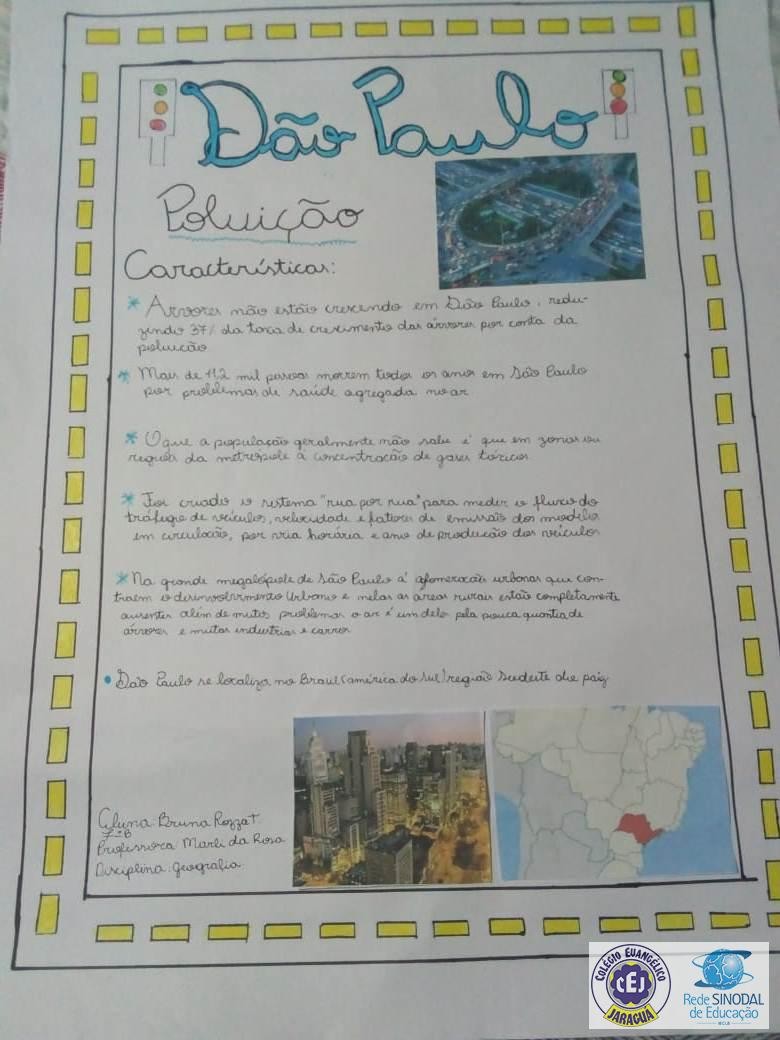 São Paulo
Poluição
Características:
* Árvores não estão crescendo em São Paulo, redu-
zindo 37% da taxa de crescimento das árvores por conta da
poluição
* Mais de 11,2 mil pessoas morrem todos os anos em São Paulo
por problemas de saúde agregada no ar
* Oque a população geralmente não sabe é que em zonas ou
região da metrópole á concentração de gases tóxicos
* Foi criado o sistema "rua por rua" para meder o fluxo do
tráfego de veículos, velocidade e fatores de emissão dos modelos
em circulação, por via horária e ano de produção dos veículos
* Na grande megalópole de São Paulo á aglomerações urbanas que con-
traem o desinvolvimento Urbano e nelas as áreas rurais estão completamente
ausentes além de muitos problemas o ar é um delo pela pouca quantia de
árvores e muitas industrias e carros
• São Paulo se localiza no Brasil (américa do sul) região sudeste do país
Aluna: Bruna Rozza
7ºB
Professora: Marli da Rosa
Disciplina: Geografia
COLÉGIO EVANGÉLICO
CEJ
JARAGUÁ
Rede SINODAL
de Educação
IECLB